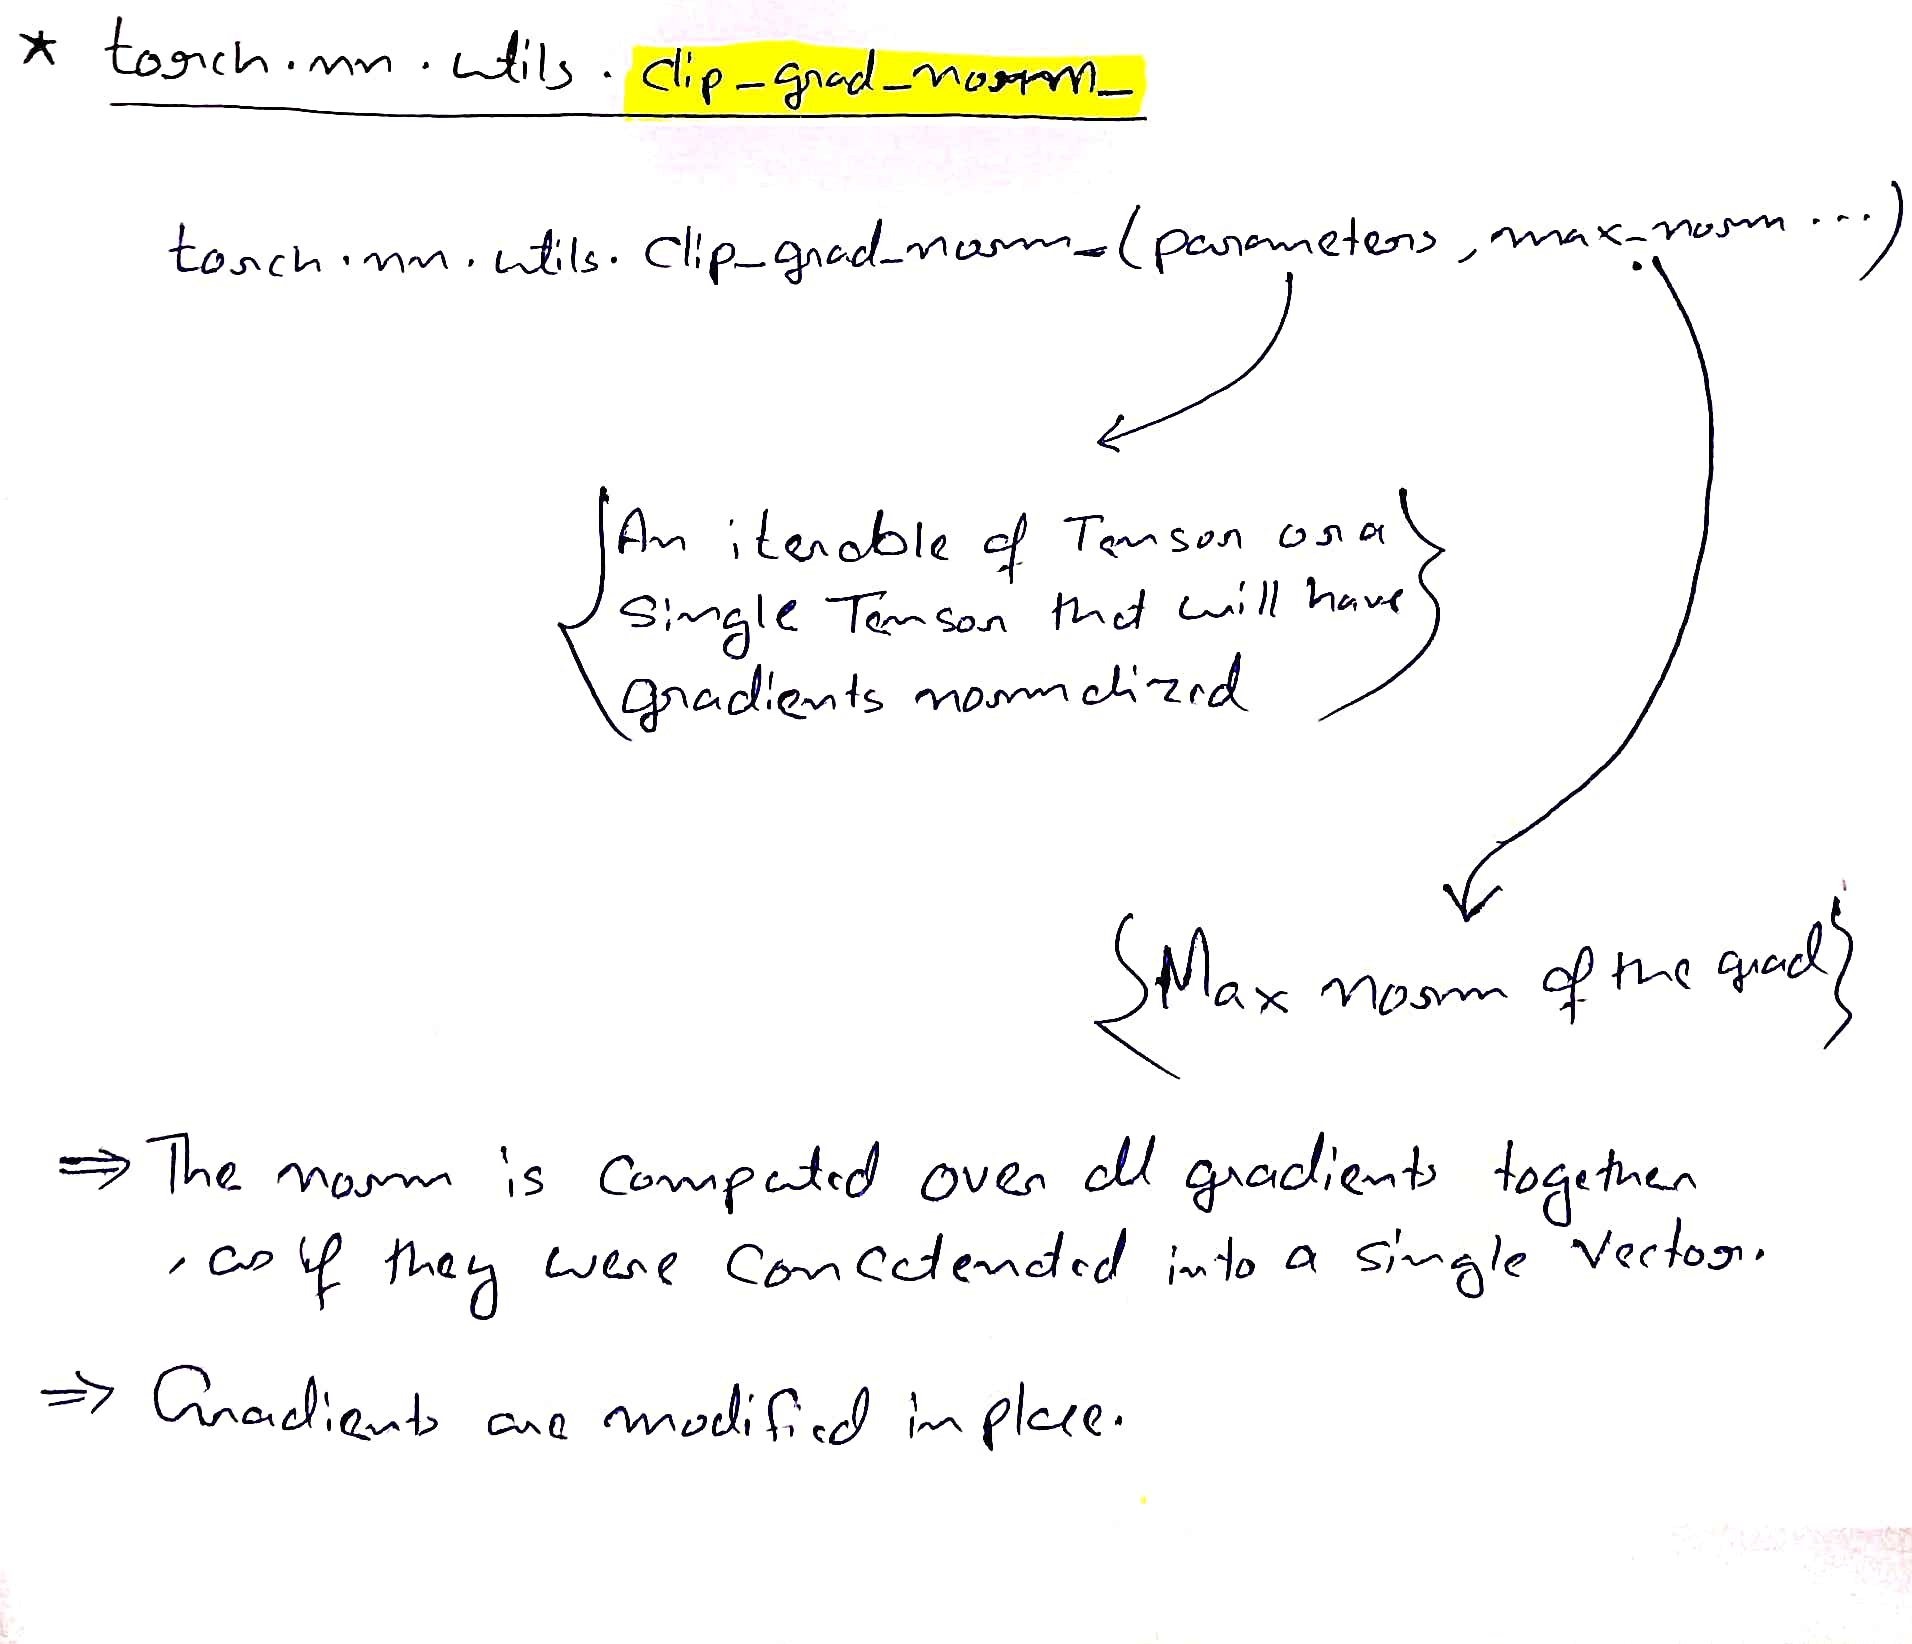 * torch.nn.utils.clip_grad_norm_
torch.nn.utils.clip_grad_norm_(parameters, max_norm ...)
{An iterable of Tensor or a
Single Tensor that will have
gradients normalized}
{Max norm of the grad}
⇒ The norm is computed over all gradients together
, as if they were Concatenated into a single Vector.
⇒ Gradients are modified in place.